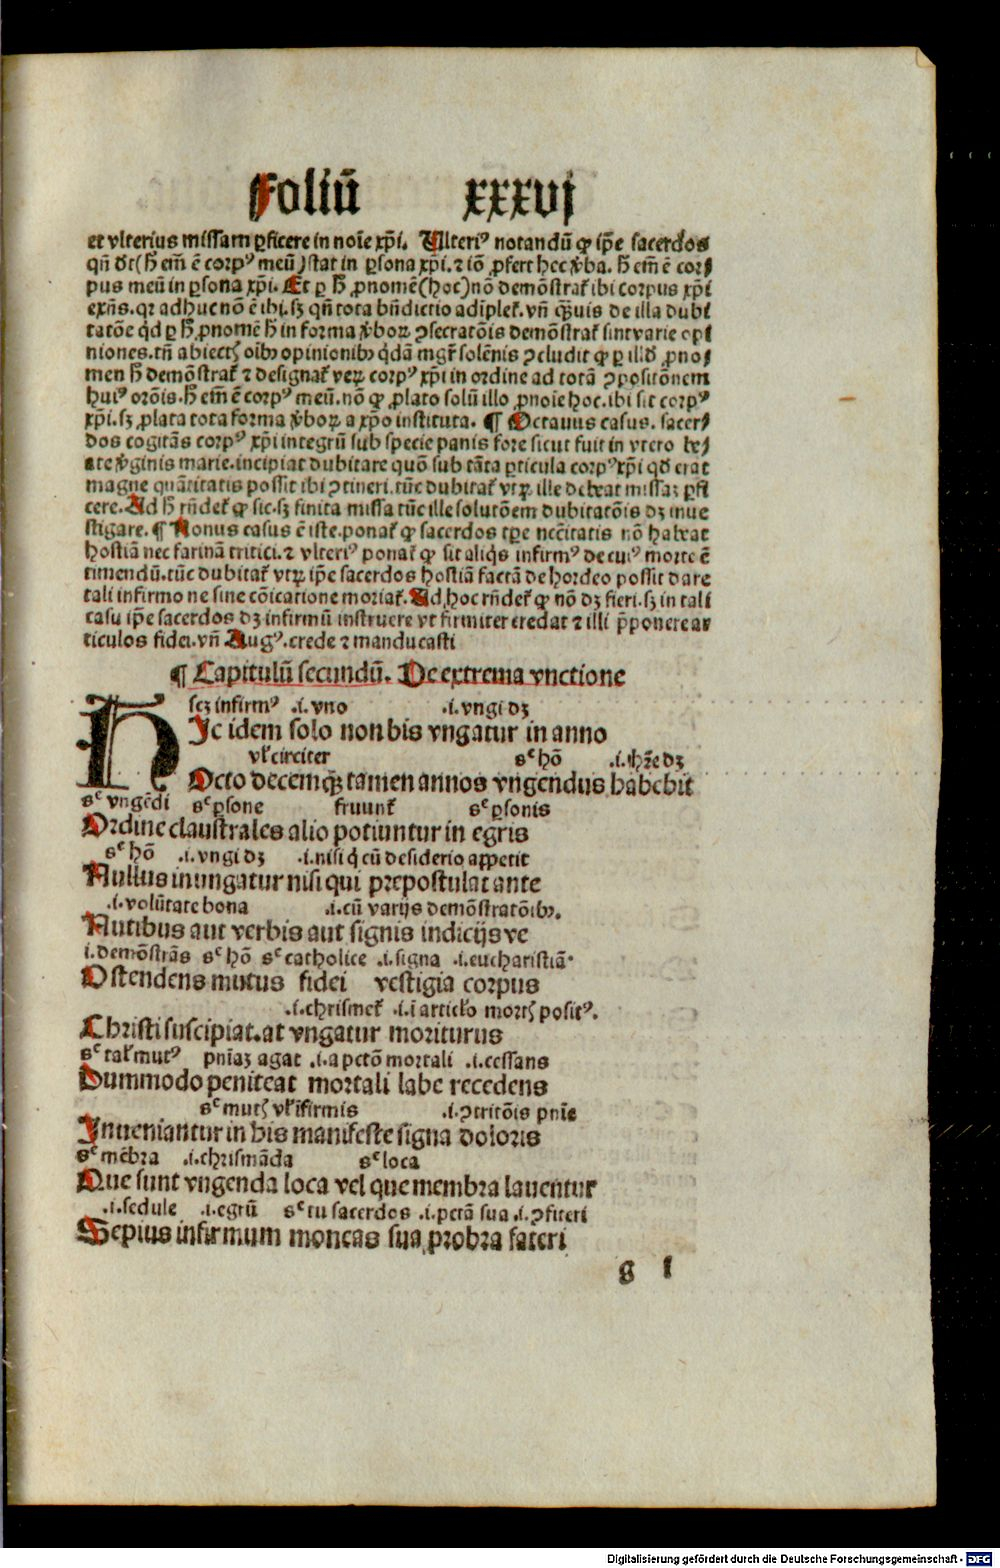 Foliū xxxvj
et vlterius missam ꝑficere in noīe xp̄i. Ulteriꝰ notandū ꝙ ip̄e sacerdos
qn̄ dt̄ (h̄ em̄ ē corpꝰ meū) stat in ꝑsona xp̄i. ⁊ iō ꝓfert hec v̄ba. h̄ em̄ ē cor⸗
pus meū in ꝑsona xp̄i. Et ꝑ h̄ ꝓnomē (hoc) nō demōstrat̄ ibi corpus xp̄i
exn̄s. qꝛ adhuc nō ē ibi. sꝫ qn̄ tota bn̄dictio adīplet̄. vn̄ qꝫuis de illa dubi
tatōe qd̄ ꝑ h̄ ꝓnomē h̄ in forma v̄boꝝ ꝯsecratōis demōstrat̄ sint varie opi
niones. tn̄ abiectꝭ oībꝫ opinionibꝫ qdā mgr̄ solēnis ꝯcludit ꝙ ꝑ illd̄ ꝓno⸗
men h̄ demōstrat̄ ⁊ designat̄ veꝝ corpꝰ xp̄i in ordine ad totā ꝯpositōnem
huiꝰ orōis. h̄ em̄ ē corpꝰ meū. nō ꝙ ꝓlato solū illo ꝓnoīe hoc. ibi sit corpꝰ
xp̄i. sꝫ ꝓlata tota forma v̄boꝝ a xp̄o instituta. ¶ Octauus casus. sacer⸗
dos cogitās corpꝰ xp̄i integrū sub specie panis fore sicut fuit in vtero be⸗
ate v̄ginis marie. incipiat dubitare quō sub tāta ꝑticula corpꝰ xp̄i qd̄ erat
magne quātitatis possit ibi ꝯtineri. tūc dubitat̄ vtꝝ ille debeat missaꝫ ꝑfi
cere. Ad h̄ rn̄det̄ ꝙ sic. sꝫ finita missa tūc ille solutōem dubitatōis dꝫ inue
stigare. ¶ Nonus casus ē iste. ponat̄ ꝙ sacerdos tꝑe necc̄itatis nō habeat
hostiā nec farinā tritici. ⁊ vlteriꝰ ponat̄ ꝙ sit aliq̇s infirmꝰ de cuiꝰ morte ē
timendū. tūc dubitat̄ vtꝝ ip̄e sacerdos hostiā factā de hordeo possit dare
tali infirmo ne sine cōicatione moriat̄. Ad hoc rn̄det̄ ꝙ nō dꝫ fieri. sꝫ in tali
casu ip̄e sacerdos dꝫ infirmū instruere vt firmiter credat ⁊ illi p̄ponere ar
ticulos fidei. vn̄ Augꝰ. crede ⁊ manducasti
¶ Capitulū secundū. De extrema vnctione
scꝫ infirmꝰ .i. vno .i. vngi dꝫ
HIc idem solo non bis vngatur in anno
vl̄ circiter sᶜ hō .i.
Octo decemqꝫ tamen annos vngendus habebit
sᶜ vngēdi sᶜ ꝑsone fruunt̄ sᶜ ꝑsonis
Ordine claustrales alio potiuntur in egris
sᶜ hō .i. vngi dꝫ .i. nisi q̇ cū desiderio appetit
Nullus inungatur nisi qui prepostulat ante
.i. volūtate bona .i. cū varijs demōstratōibꝫ.
Nutibus aut verbis aut signis indicijsve
i. demōstrās sᶜ hō sᶜ catholice .i. signa .i. eucharistiā
Ostendens mutus fidei vestigia corpus
.i. chrismet̄ .i. ī articlo mortꝭ positꝰ.
Christi suscipiat. at vngatur moriturus
sᶜ tal̄ mutꝰ pn̄iaꝫ agat .i. a pctō mortali .i. cessans
Dummodo peniteat mortali labe recedens
sᶜ mutꝭ vl̄ īfirmis .i. ꝯtritōis pn̄ie
Inueniantur in his manifeste signa doloris
sᶜ mēbra .i. chrismāda sᶜ loca
Que sunt vngenda loca vel que membra lauentur
.i. sedule .i. egrū sᶜ tu sacerdos .i. pctā sua .i. ꝯfiteri
Sepius infirmum moneas sua probra fateri
g 1
Digitalisierung gefördert durch die Deutsche Forschungsgemeinschaft - DFG